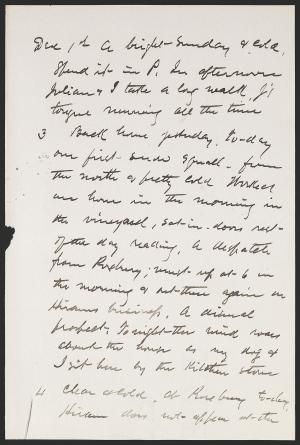 Dec 1st A bright Sunday & cold,
Spend it in P. In afternoon
Julian & I take a long walk, J's
tongue running all the time
3 Back home yesterday. To-day
our first snow squall. from
the north & pretty cold Worked
an hour in the morning in
the vineyard, sat in-doors rest
of the day reading, A despatch
from Roxbury; must up at 6 in
the morning & out there again on
Hirams business, A dismal
prospect. To night the wind roars
about the house as my dog &
I sit here by the Kitchen stove
4 Clear & cold. At Roxbury to-day,
Hiram does not appear at the